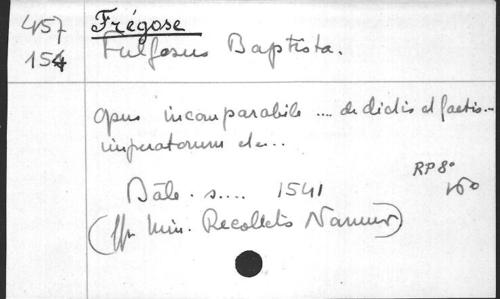 457 Frégose
154 Fulfosus Baptista.
Opus incomparabile .... de dictis et factis...
imperatorum etc...
RP 8º
Bâle. s.... 1541 160
(ffr Min. Recollets Namur)